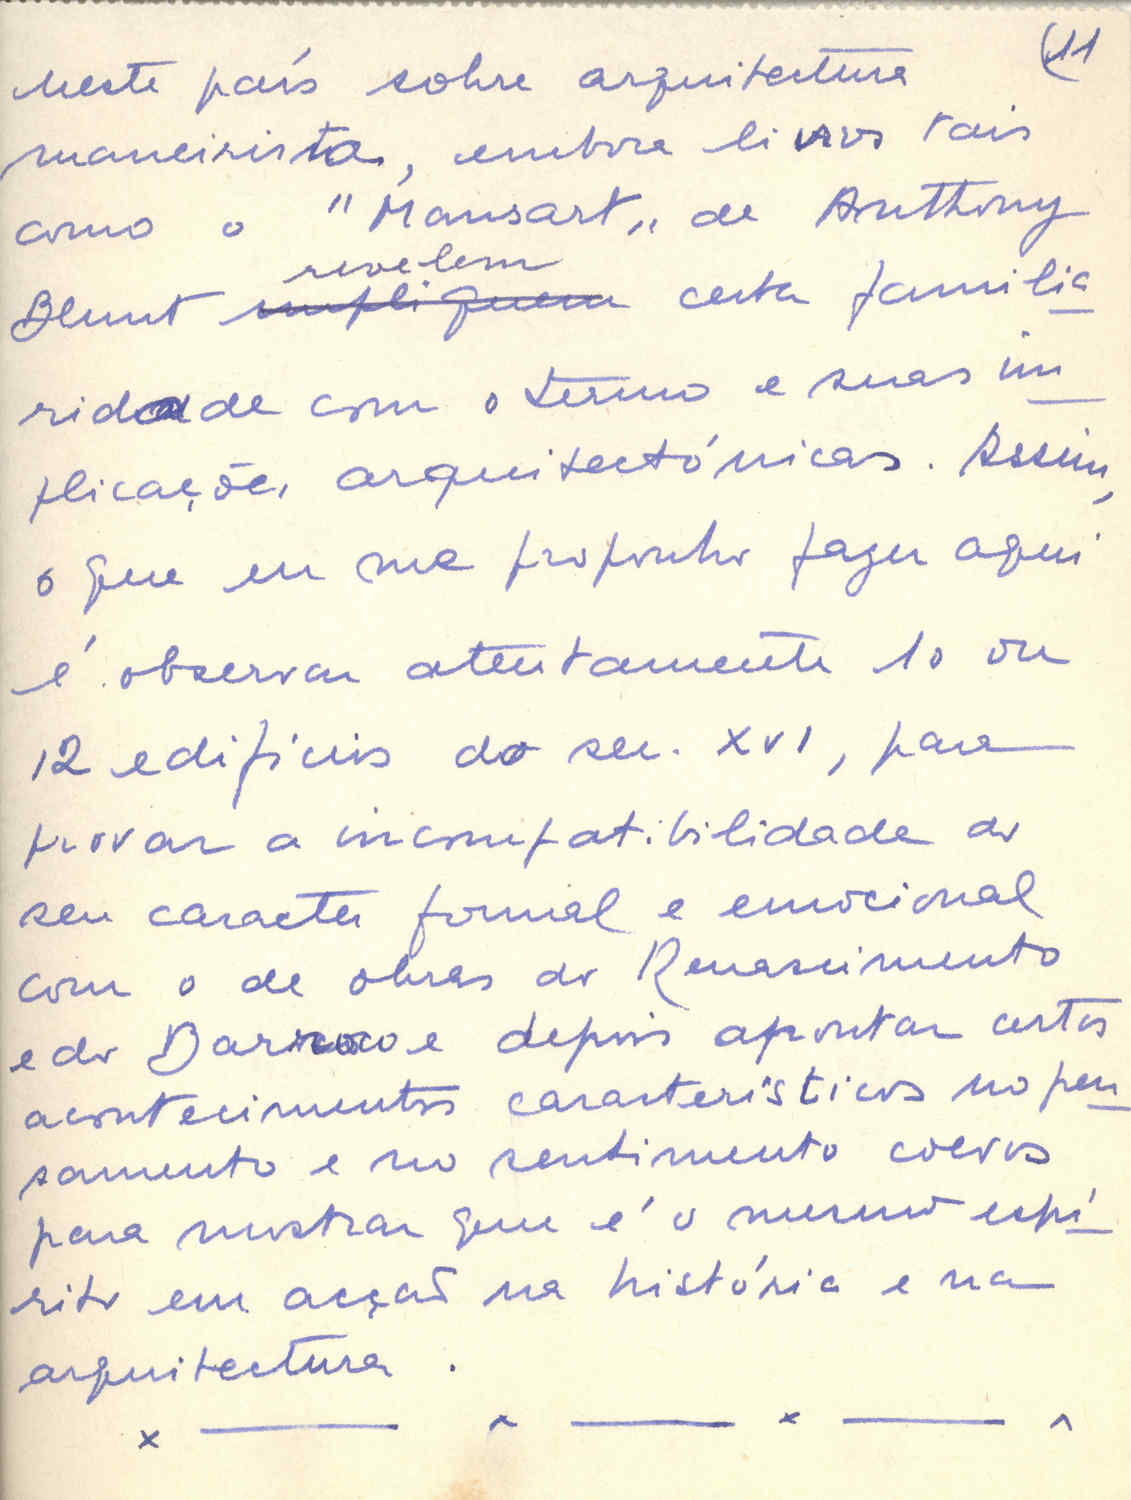 (11
neste país sobre arquitectura
maneirista, embora livros tais
como o "Mansart" de Anthony
revelem
Blunt impliquem certa familia
ridade com o termo e suas im
plicações arquitectónicas. Assim,
o que eu me proponho fazer aqui
é observar atentamente 10 ou
12 edifícios do sec. XVI, para
provar a incompatibilidade do
seu caracter formal e emocional
com o de obras do Renascimento
e do Barroco e depois apontar certos
acontecimentos característicos no pen
samento e no sentimento coevos
para mostrar que é o mesmo espí
rito em acção na história e na
arquitectura.